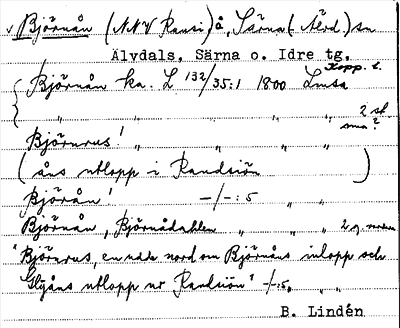 v Björnån (NNV Ransi) å, Särna (Nörd.) sn
Älvdals, Särna o. Idre tg.
Björnån ka. L 132/35:1 1800 Lmsa Kopp. l.
" " " " " 2 st
små?
Björnrus! " " " "
(åns utlopp i Randsiön)
Björån! -/-:5 " "
Björnån, Björnådahlen " " " 2 g.
"Björnrus, en udde nord om Björnåns inlopp och
Glyåns utlopp ur Randsiön" -/-:5, " "
B. Lindén